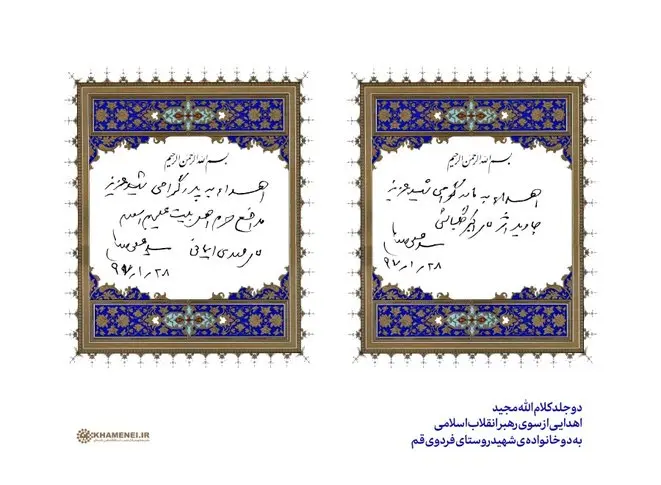 بسم الله الرحمن الرحیم
اهداء به مادر گرامی شهید عزیز
جاوید اثر علی اکبر
سید علی خامنه‌ای
۹۷/۱/۲۸
بسم الله الرحمن الرحیم
اهداء به پدر گرامی شهید عزیز
مدافع حرم اهل بیت علیهم السلام
ایمانی سید علی خامنه‌ای
۹۷/۱/۲۸
دو جلد کلام الله مجید
اهدایی از سوی رهبر انقلاب اسلامی
به دو خانواده‌ی شهید روستای فردوی قم
KHAMENEI.IR